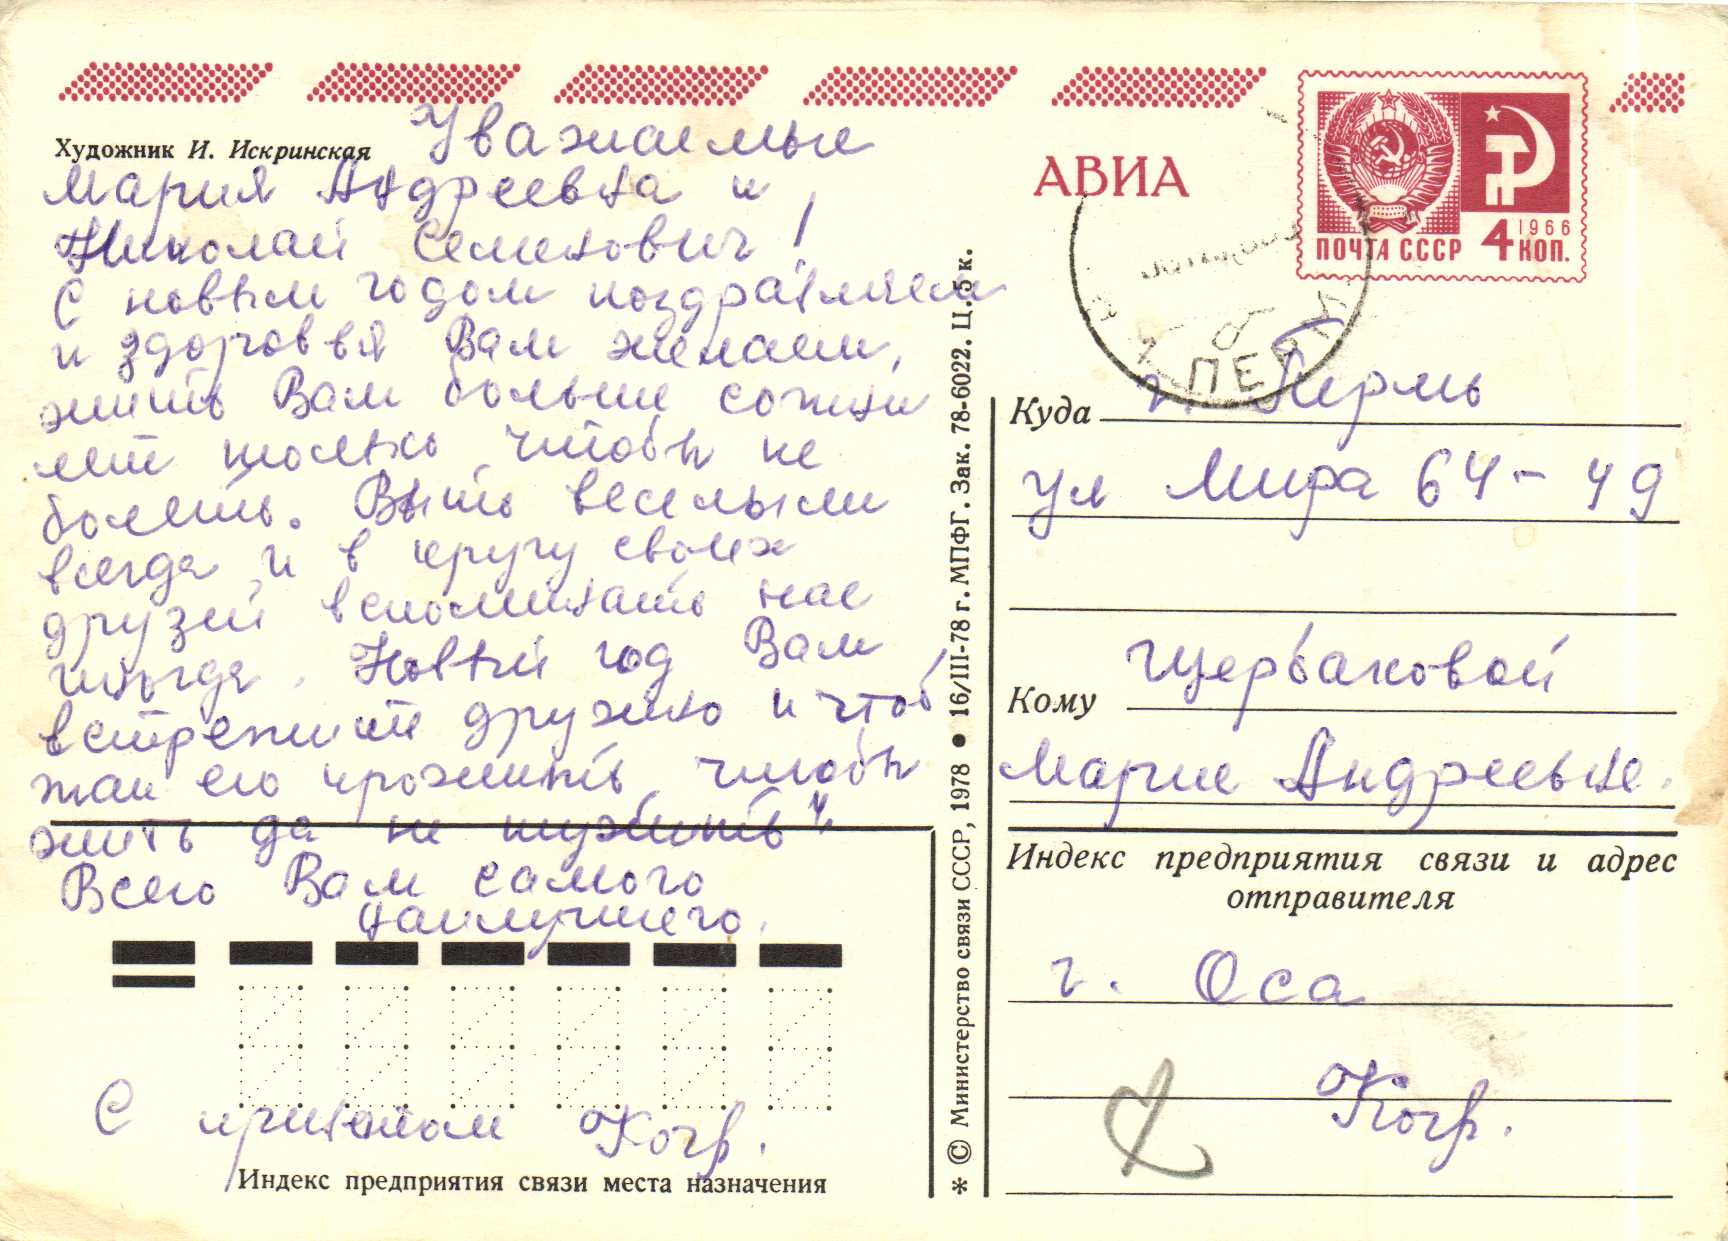 Художник И. Искринская
Уважаемые
Мария Андреевна и
Николай Семенович!
С новым годом поздравляем
и здоровья Вам желаем,
жить Вам больше сотни
лет только, чтобы не
болеть. Быть веселыми
всегда и в кругу своих
друзей вспоминать нас
иногда. Новый год Вам
встретить дружно и чтоб
его прожить, чтобы
жить да не тужить"
Всего Вам самого
наилучшего.
С приветом Кочр.
Индекс предприятия связи места назначения
* © Министерство связи СССР, 1978 ● 16/III-78 г. МПФГ. Зак. 78-6022. Ц. 5 к.
АВИА
ПОЧТА СССР
1966
4 КОП.
ПЕР
Куда г. Пермь
ул Мира 64-49
Кому Щербаковой
Марие Андреевне.
Индекс предприятия связи и адрес
отправителя
г. Оса
Кочр.